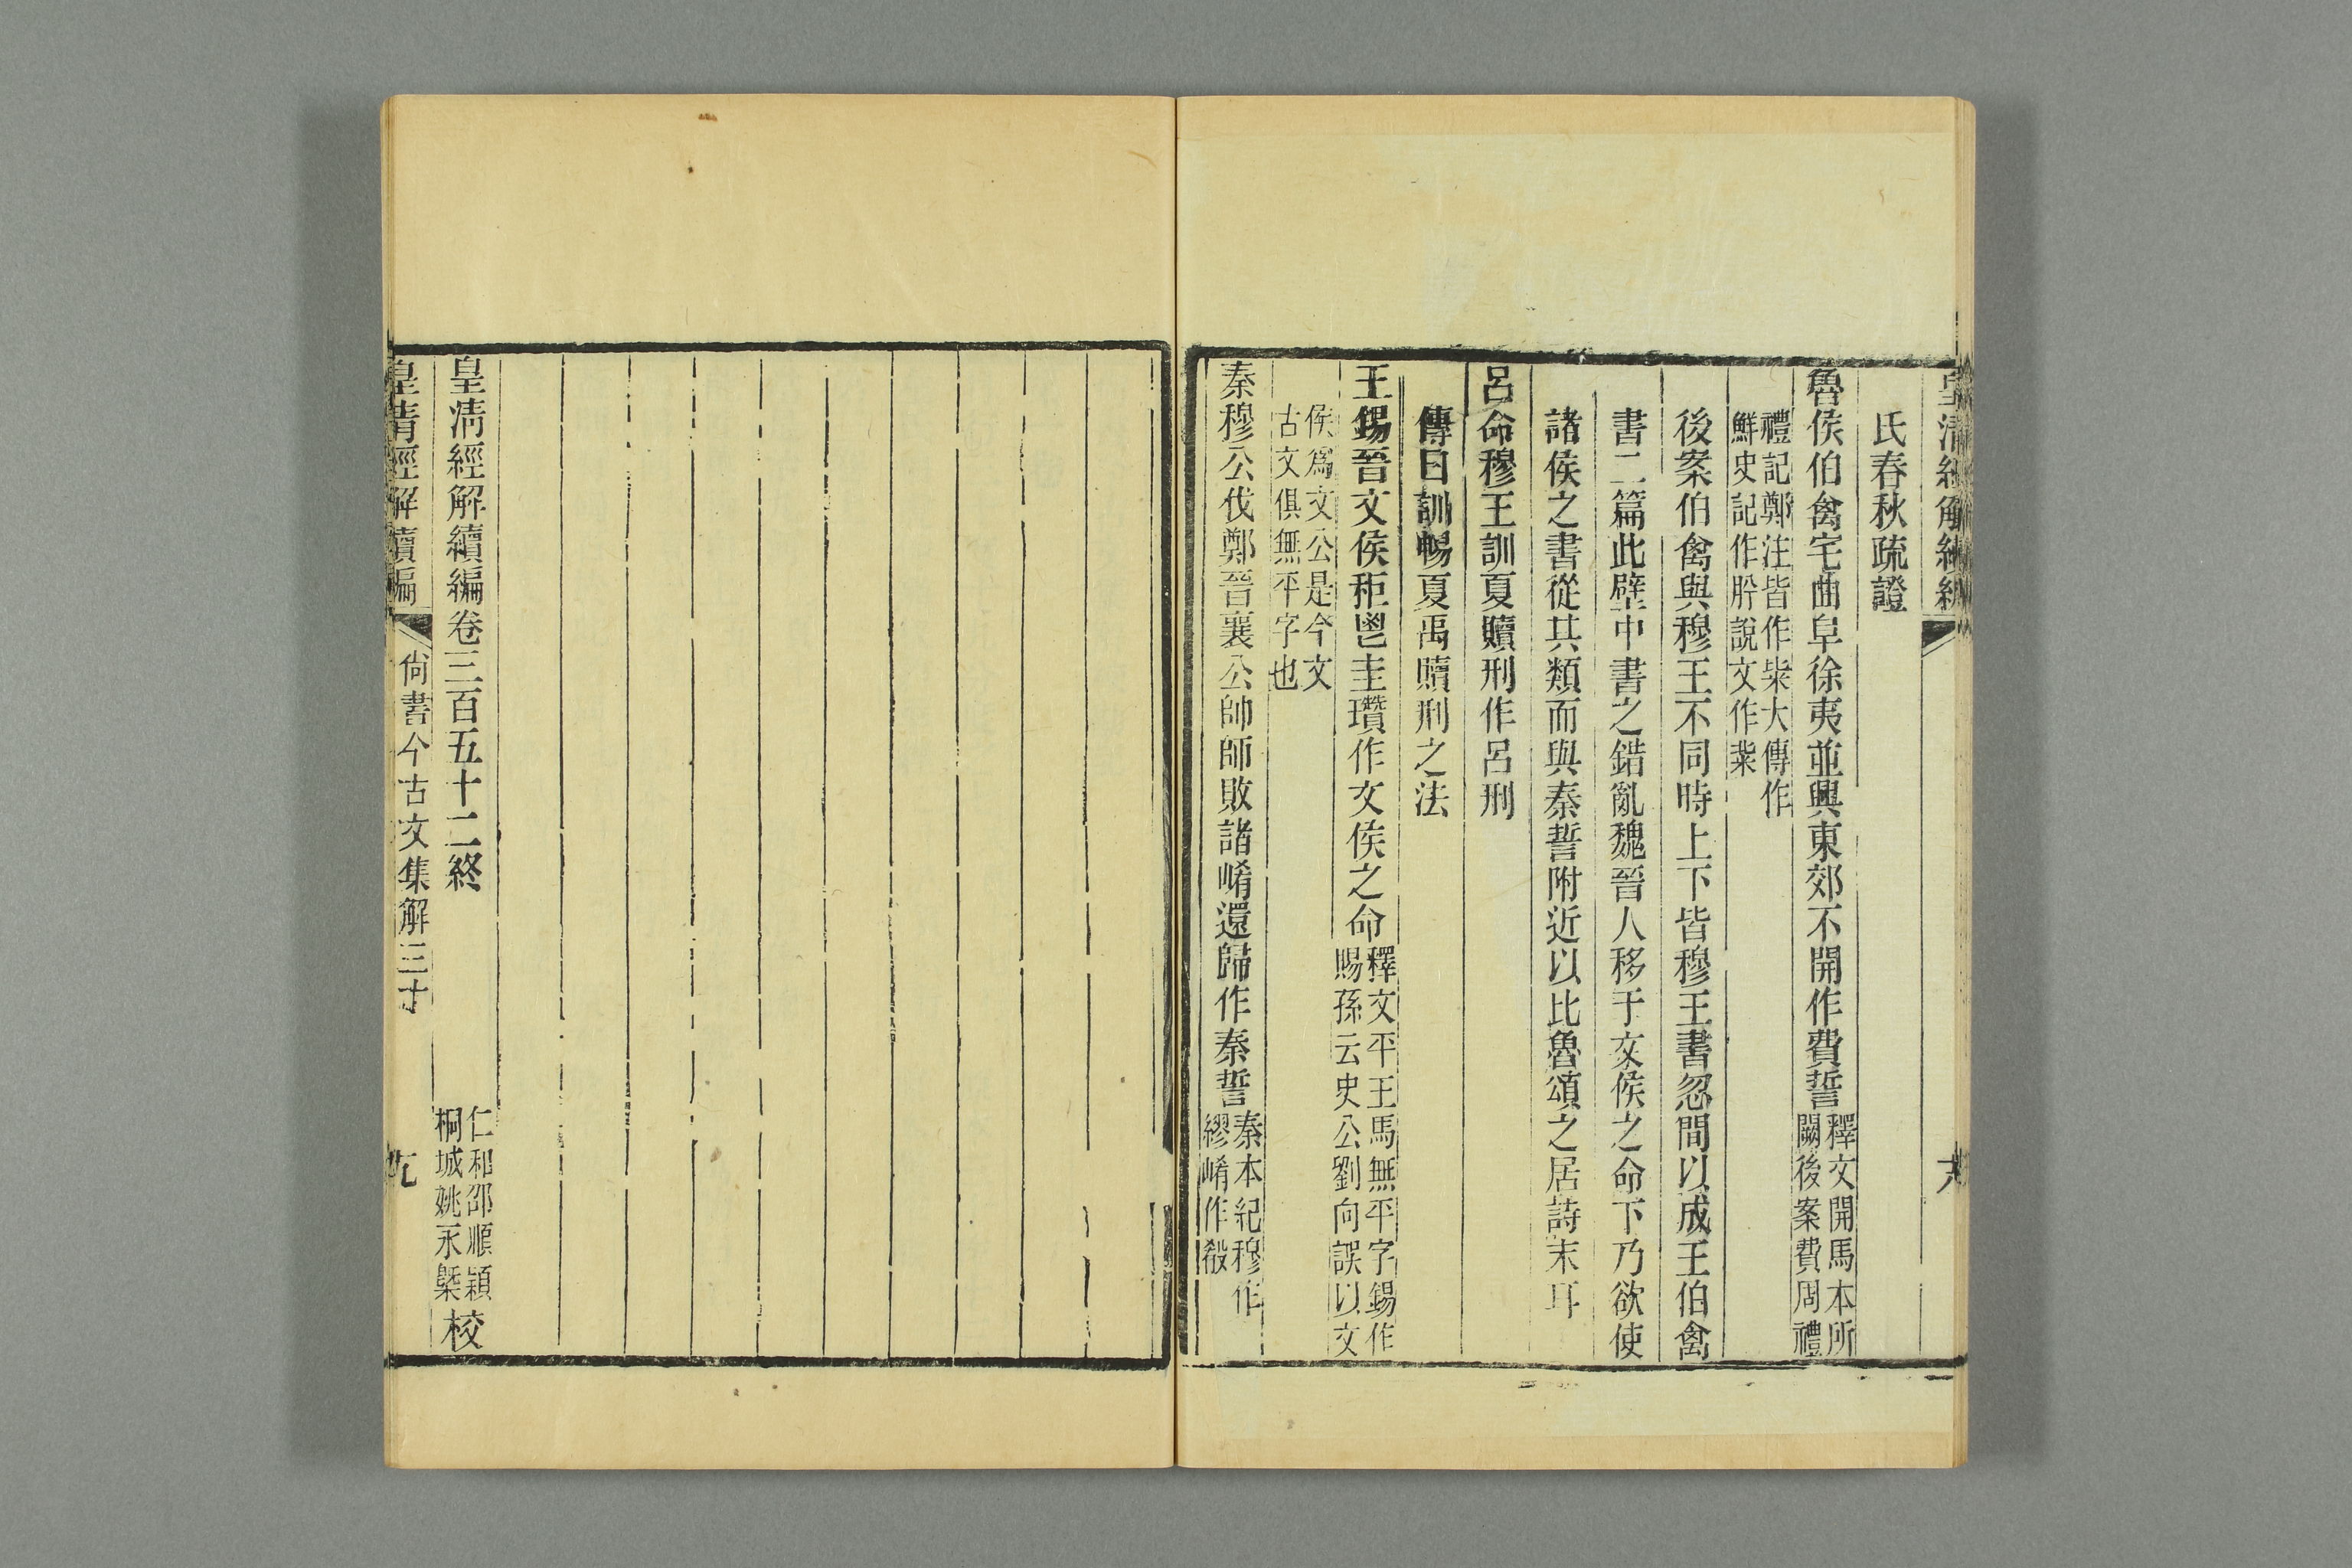 皇清經解續編
六
氏春秋疏證
魯侯伯禽宅曲阜徐夷並興東郊不開作費誓釋文開馬本所
闢後案費周禮
禮記鄭注皆作粊大傳作
鮮史記作肸說文作粊
後案伯禽與穆王不同時上下皆穆王書忽間以成王伯禽
書二篇此壁中書之錯亂魏晉人移于文侯之命下乃欲使
諸侯之書從其類而與秦誓附近以比魯頌之居詩末耳
呂命穆王訓夏贖刑作呂刑
傳曰訓暢夏禹贖刑之法
王錫晉文侯秬鬯圭瓚作文侯之命釋文平王馬無平字錫作
賜孫云史公劉向誤以文
侯爲文公是今文
古文俱無平字也
秦穆公伐鄭晉襄公帥師敗諸崤還歸作秦誓秦本紀穆作
繆崤作殽
皇清經解續編卷三百五十二終
仁和邵順穎
桐城姚永㮣
校
皇清經解續編
尙書今古文集解三十
九